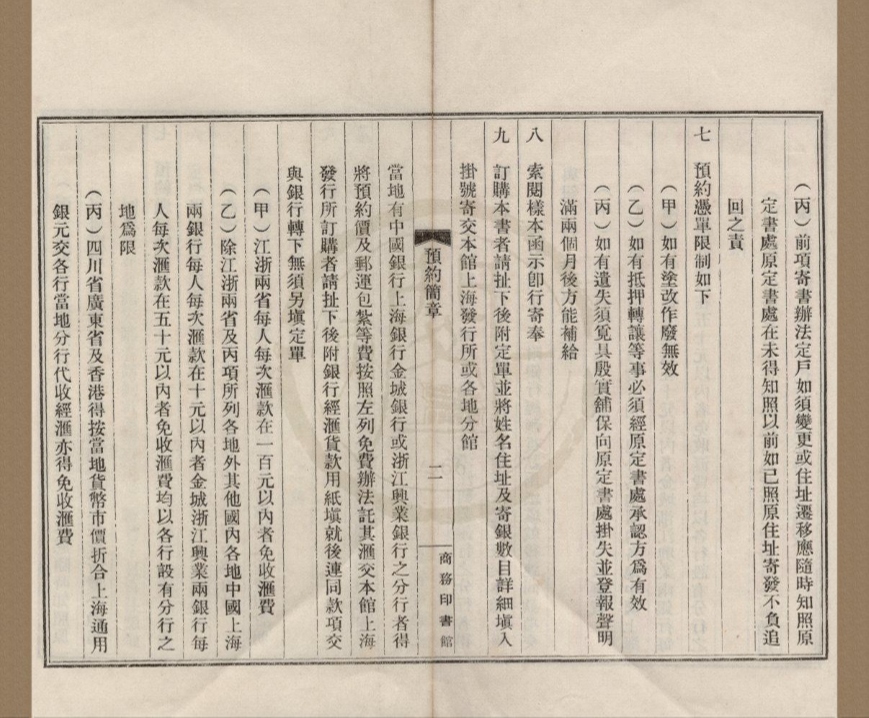 （丙）前項寄書辦法定戶如須變更或住址遷移應隨時知照原
定書處原定書處在未得知照以前如已照原住址寄發不負追
回之責
七　預約憑單限制如下
（甲）如有塗改作廢無效
（乙）如有抵押轉讓等事必須經原定書處承認方爲有效
（丙）如有遺失須覓具殷實舖保向原定書處掛失並登報聲明
滿兩個月後方能補給
八　索閱樣本函示卽行寄奉
九　訂購本書者請扯下後附定單並將姓名住址及寄銀數目詳細塡入
掛號寄交本館上海發行所或各地分館
預約簡章　二　商務印書館
當地有中國銀行上海銀行金城銀行或浙江興業銀行之分行者得
將預約價及郵運包紮等費按照左列免費辦法託其滙交本館上海
發行所訂購者請扯下後附銀行經滙貨款用紙塡就後連同款項交
與銀行轉下無須另塡定單
（甲）江浙兩省每人每次滙款在一百元以內者免收滙費
（乙）除江浙兩省及丙項所列各地外其他國內各地中國上海
兩銀行每人每次滙款在十元以內者金城浙江興業兩銀行每
人每次滙款在五十元以內者免收滙費均以各行設有分行之
地爲限
（丙）四川省廣東省及香港得按當地貨幣市價折合上海通用
銀元交各行當地分行代收經滙亦得免收滙費